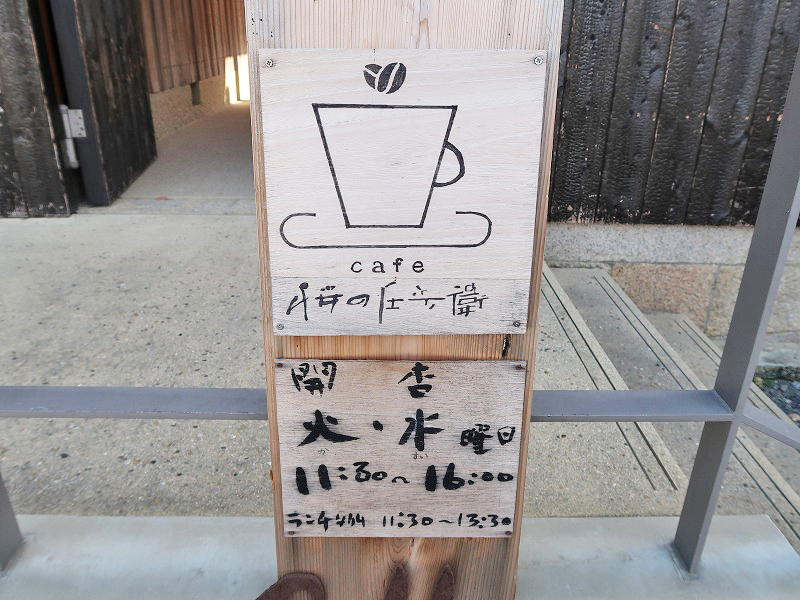 cafe
桜の庄兵衛
開
火・水曜日
か すい
11:30~16:00
ランチタイム 11:30~13:30